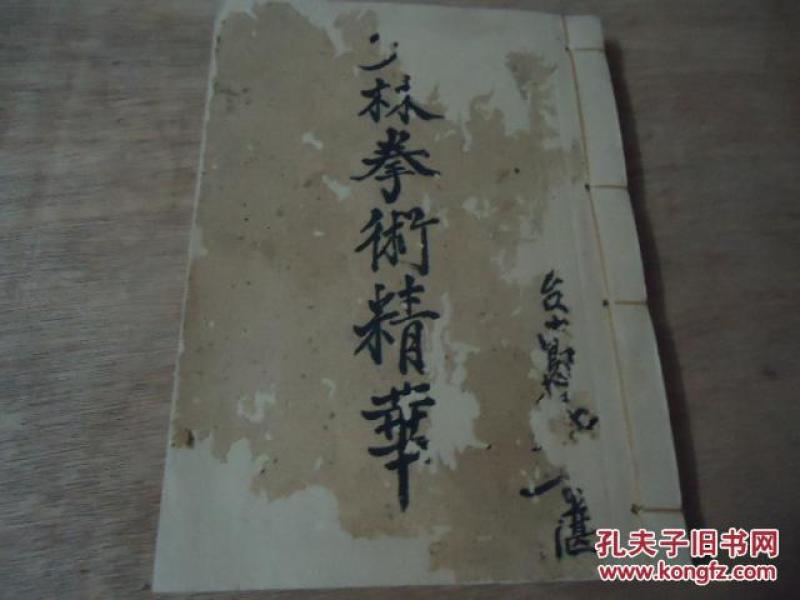 少林拳術精華
湛
孔夫子旧书网
www.kongfz.com